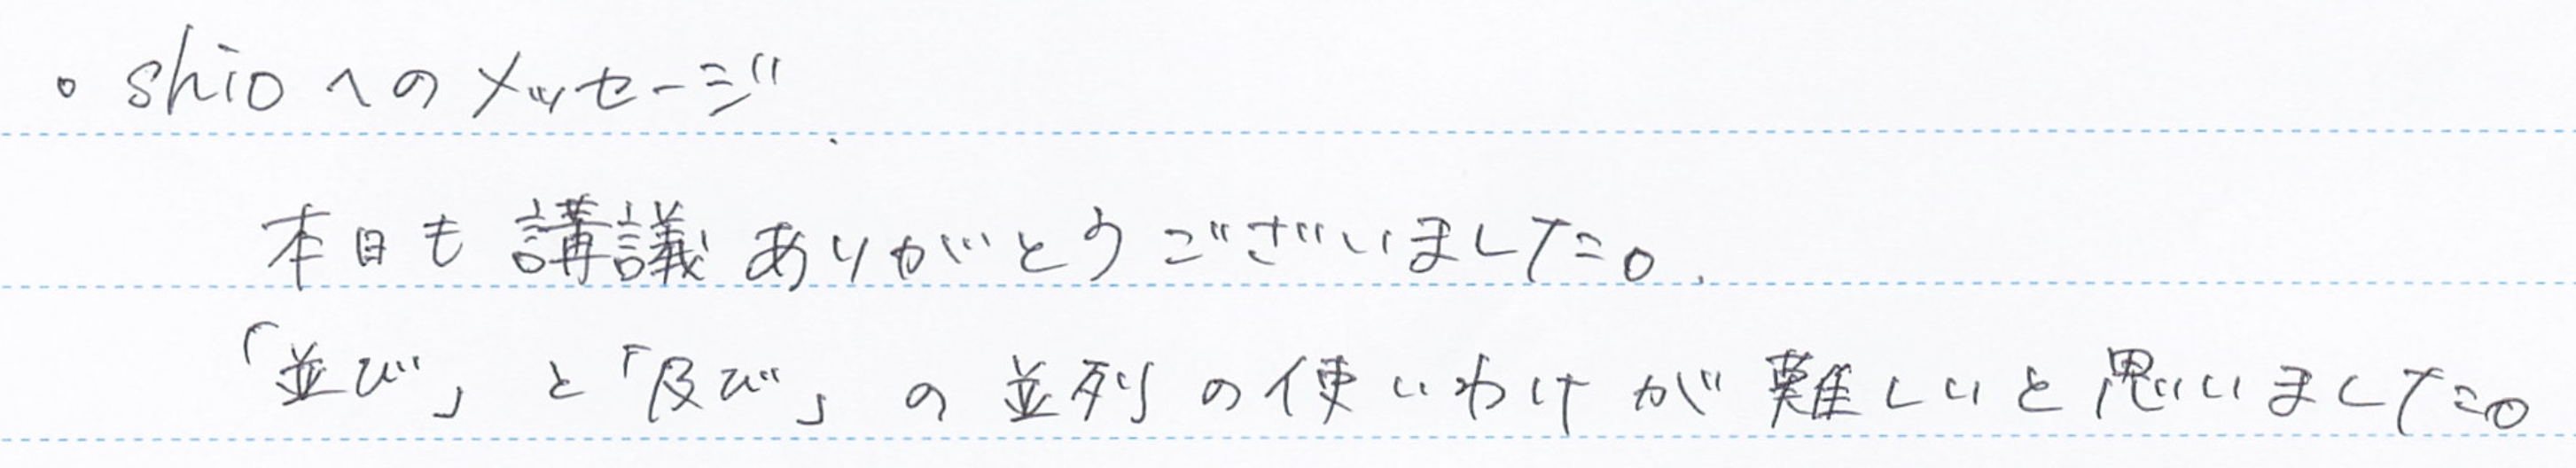 。shioへのメッセージ
本日も講議ありがとうございました。
「並び」と「及び」の並列の使いわけが難しいと思いました。